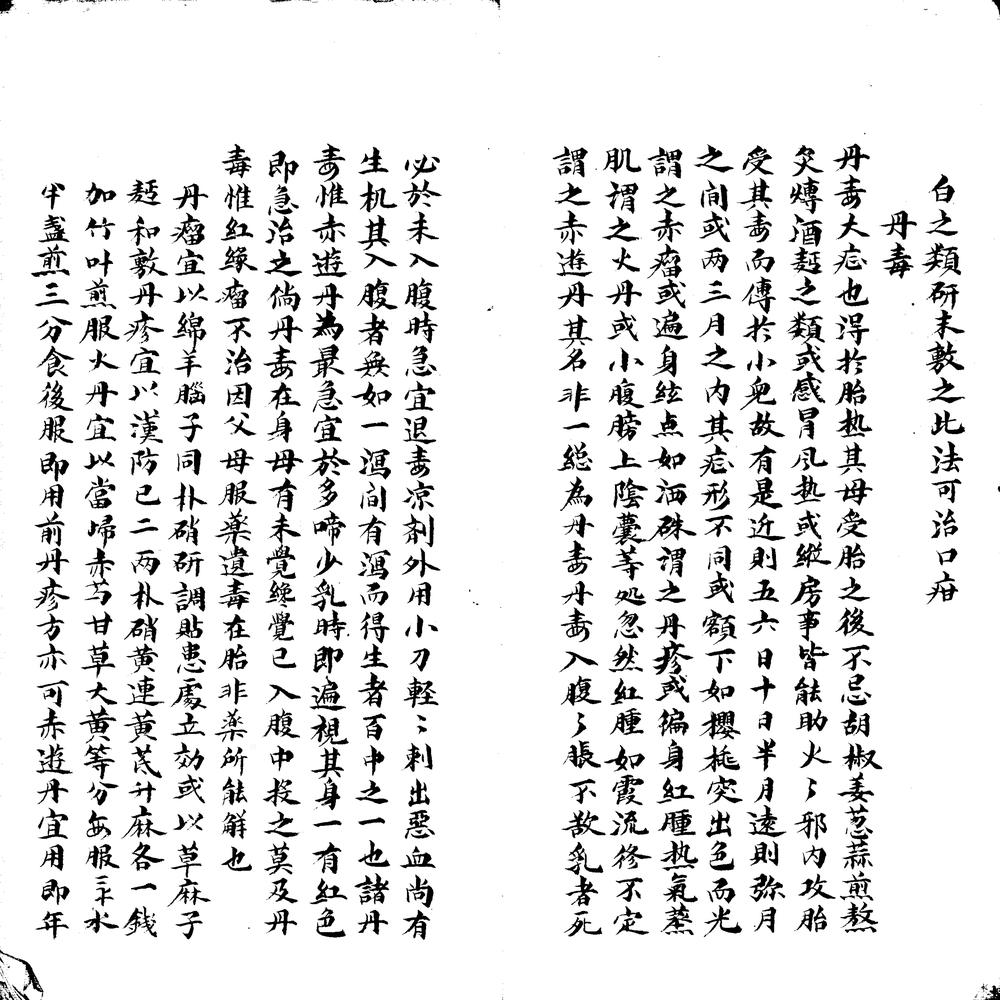 白之類研末敷之此法可治口疳
丹毒
丹毒大症也淂扵胎热其母受胎之後不忌胡椒姜葱蒜煎熬
炙煿酒麪之類或感冒風热或縱房事皆能助火〻邪内攻胎
受其毒而傳扵小兒故有是近則五六日十日半月遠則弥月
之间或两三月之内其症形不同或額下如櫻桃突出色而光
謂之赤瘤或遍身絃点如洒硃謂之丹疹或徧身红腫热氣蒸
肌謂之火丹或小腹膀上陰囊等処忽然红腫如霞流移不定
謂之赤遊丹其名非一総為丹毒丹毒入腹〻脹不散乳者死
必於未入腹時急宜退毒凉剂外用小刀軽〻刺出惡血尚有
生机其入腹者無如一瀉间有瀉而得生者百中之一也諸丹
毒惟赤遊丹為最急宜於多啼少乳時即遍視其身一有红色
即急治之倘丹毒在身母有未覺纔覺已入腹中投之莫及丹
毒惟红緣瘤不治因父母服薬遺毒在胎非薬所能解也
丹瘤宜以綿羊腦子同朴硝研調貼患處立効或以草麻子
麪和敷丹疹宜以漢防已二两朴硝黄連黄芪升麻各一錢
加竹叶煎服火丹宜以當归赤芍甘草大黄等分每服三𠦑水
半盞煎三分食後服即用前丹疹方亦可赤遊丹宜用即年